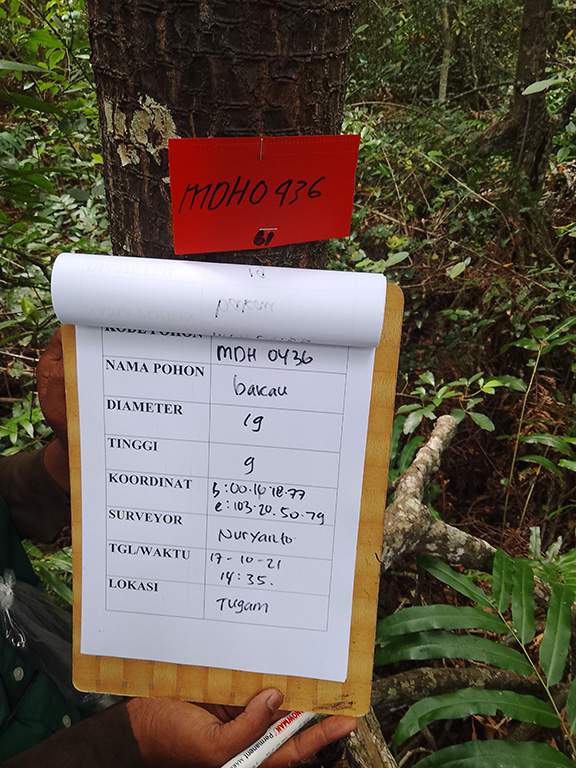 MDH0436
61
KODE POHON MDH 0436
NAMA POHON bakau
DIAMETER 19
TINGGI 9
KOORDINAT S:00.16.18.77
e:103.20.50.79
SURVEYOR Nuryanto
TGL/WAKTU 17-10-21
14:35.
LOKASI Tugam
SNOWMAN Permanent